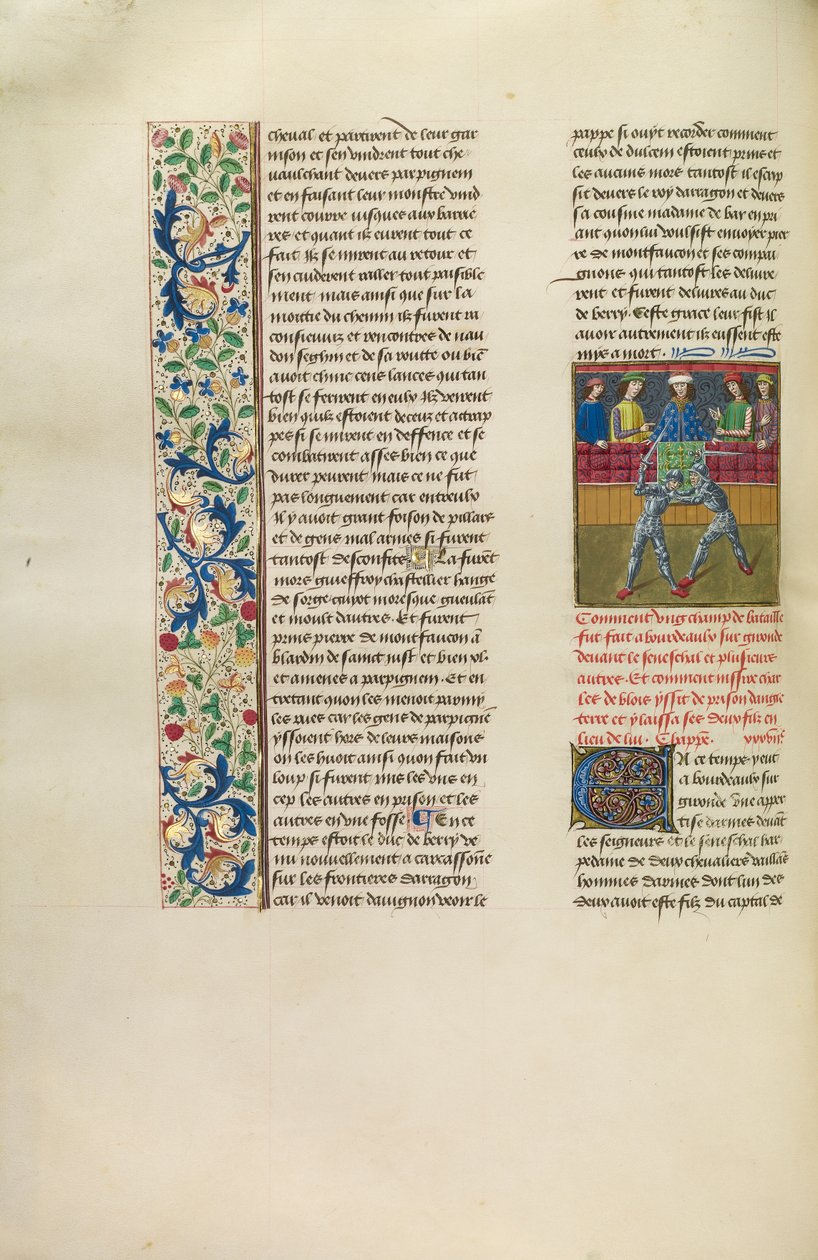 cheval et partirent de leur gar
nison et sen vindrent tout che
vaulchant devers parpignem
et en faisant leur monstre vind
rent courre iusques aux barrie
res et quant ilz eurent tout ce
fait ilz se mirent au retour et
sen cuiderent raller tout paisible
ment mais ainsi que sur la
moittie du chemin ilz furent ra
consieuviz et rencontres de nau
don seghin et de sa routte ou bien
avoit chinc cens lances qui tan
tost se ferirent en eulx Ilz veirent
bien quilz estoient deceuz et attrap
pes si se mirent en deffence et se
combatirent asses bien ce que
durer peurent mais ce ne fut
pas longuement car entreulx
il y avoit grant foison de pillars
et de gens mal armes si furent
tantost desconfits La furent
mors guieffroy chastellier hange
de sorge guyot moresque
et moult dautres. Et furent
prins pierre de montfaucon
blardin de sainct iust et bien xl.
et amenes a parpignem. Et en
tretant quon les menoit parmy
les rues car les gens de parpigne
yssoient hors de leurs maisons
on les huoit ainsi quon fait un
loup si furent mis les uns en
cep les autres en prison et les
autres en une fosse En ce
temps estoit le duc de berry ve
nu nouvellement a carcassonne
sur les frontieres darragon
car il venoit davignon veoir le
pappe si ouyt recorder comment
ceulx de dulcem estoient prins et
les aucuns mors tantost il escrip
sit devers le roy darragon et devers
sa cousine madame de bar en pri
ant quon lui voulsist envoyer pier
re de montfaucon et ses compai
gnons qui tantost les delivre
rent et furent delivres au duc
de berry. Ceste grace leur fist il
avoir autrement ilz eussent este
mys a mort.
Comment ung champ de bataille
fut fait a bourdeaulx sur gironde
devant le seneschal et plusieurs
autres. Et comment missire char
les de blois yssit de prison dangle
terre et y laissa ses deux filz en
lieu de lui. Chappe.
En ce temps y eut
a bourdeaulx sur
gironde une apper
tise darmes devant
les seigneurs et le seneschal har
pedaine de deux chevaliers vaillans
hommes darmes dont lun des
deux avoit este filz du captal de